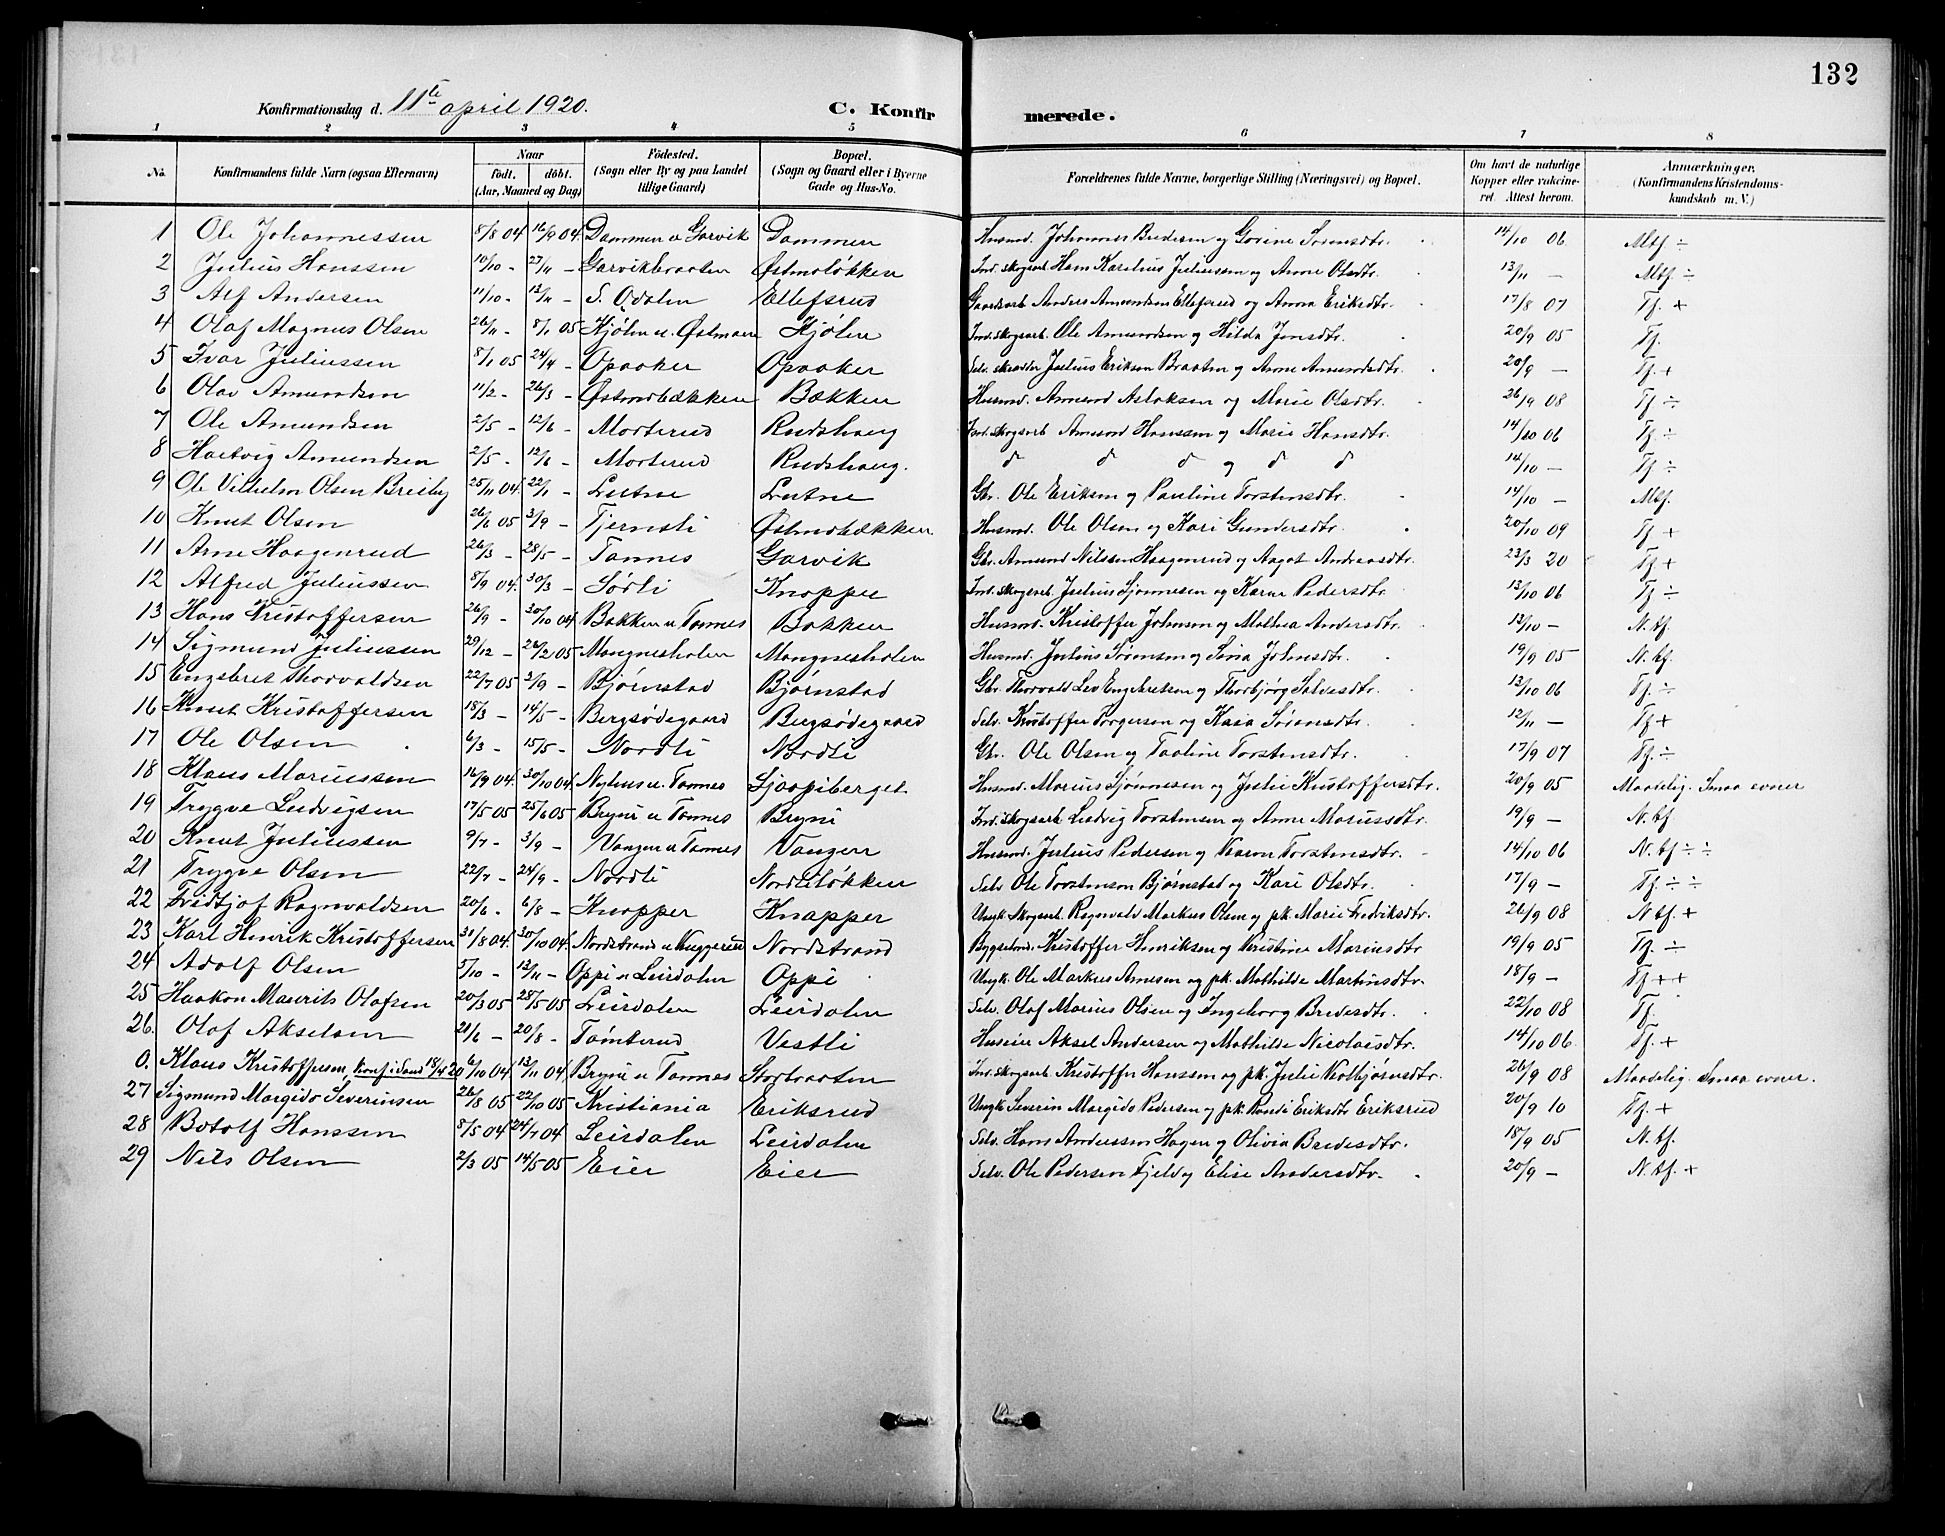 132
Konfirmationsdag d. 11te april 1920. C. Konfirmerede.
1 2 3 4 5 6 7 8
No. Konfirmandens fulde Navn (ogsaa Efternavn) Naar født. døbt. (Aar, Maaned og Dag) Fødested. (Sogn eller By og paa Landet tillige Gaard) Bopæl. (Sogn og Gaard eller i Byerne Gade og Hus-No. Forældrenes fulde Navne, borgerlige Stilling (Næringsvei) og Bopæl. Om havt de naturlige Kopper eller vakcineret. Attest herom. Anmærkninger. (Konfirmandens Kristendomskundskab m. V.)
1 Ole Johannessen 8/8 04 16/9 04 Dammen u. Garvik Dammen Husmd. Johannes Pedersen og Gorine Sørensdtr. 14/10 06 Mtf ÷
2 Julius Hanssen 10/10 - 27/11 - Garvikbraaten Østmoløkken Ind. skogsarb. Hans Karelius Juliussen og Anne Olsdtr. 13/11 — Mtf. ÷
3 Alf Andersen 11/10 - 12/11 - S. Odalen Ellefsrud Gaardsarb Anders Amundsen Ellefsrud og Anna Eriksdtr. 17/8 07 Tf. +
4 Olaf Magnus Olsen 26/11 - 8/1 05 Kjølen u. Østmoen Kjølen Ind. skogsarb. Ole Amundsen og Hilda Jonsdtr. 20/9 05 Tf.
5 Ivar Juliussen 8/1 05 24/4 - Opaaker Opaaker Selv. skrædder Julius Eriksen Braaten og Anne Amundsdtr. 20/9 — Tf. +
6 Olav Amundsen 11/2 - 26/3 - Østmobækken Bækken Husmd. Amund Aslaksen og Marie Olsdtr. 26/9 08 Tf ÷
7 Ole Amundsen 2/5 - 12/6 - Morterud Rudshaug Ind. skogsarb Amund Hanssen og Marie Hansdtr. 14/10 06 Tf. ÷
8 Hartvig Amundsen 2/5 - 12/6 - Morterud Rudshaug. d d d og d d 14/10 — Tf. ÷
9 Ole Vilhelm Olsen Breiby 25/11 04. 22/1 - Lutne Lutne Gbr. Ole Eriksen og Pauline Torstensdtr. 14/10 — Mtf.
10 Knut Olsen 26/6 05 3/9 - Tjernsli Østmobækken Husmd. Ole Olsen og Kari Gundersdtr. 20/10 09 Tf +
11 Arne Haagenrud 26/3 - 28/5 - Tannes Garvik Gbr. Amund Nilssen Haagenrud og Aagot Andreasdtr. 23/3 20 Tf +
12 Alfred Juliussen 8/9 04. 30/3 - Sørli Knappe Ind. skogsarb. Julius Sjønnesen og Karen Pedersdtr. 13/10 06 Tf. ÷
13 Hans Kristoffersen 26/9 - 30/10 04 Bakken u. Tannes Bakken Husmd. Kristoffer Johnsen og Mathea Andersdtr. 12/10 — N. tf.
14 Sigmund Juliussen 29/12 - 26/2 05 Mangnesholen Mangnesholen Husmd. Julius Sørensen og Siria Johnsdtr. 19/9 05 N. tf.
15 Engebret Thorvaldsen 22/7 05 3/9 - Bjørnstad Bjørnstad Gbr. Thorvald Lev Engebretsen og Thorbjørg Selvesdtr. 13/10 06 Tf. ÷
16 Knut Kristoffersen 18/3 - 14/5 - Bergsødegaard Bergsødegaard Selv. Kristoffer Torgersen og Kasia Sørensdtr. 12/11 — Tf +
17 Ole Olsen 6/3 - 15/5 - Nordli Nordli Gbr. Ole Olsen og Paoline Torstensdtr. 17/9 07 Tf. ÷
18 Klaus Mariussen 16/9 04. 30/10 04. Nyhus u. Tannes Sjaapiberget Husmd. Marius Sjønnesen og Julie Kristoffersdtr. 20/9 05 Maadelig. Smaa evner
19 Trygve Ludvigsen 17/5 05 25/6 05 Bryni u Tannes Bryni Ind. skogsarb Ludvig Torstensen og Anne Mariusdtr. 19/9 — N. tf
20 Knut Juliussen 9/7 - 3/9 - Vangen u Tannes Vangen Husmd. Julius Pedersen og Karen Torstensdtr. 14/10 06 N. tf ÷ ÷
21 Trygve Olsen 22/7 - 24/9 - Nordli Nordliløkken Selv Ole Torstensen Bjørnstad og Kari Olsdtr. 17/9 — Tf. ÷ ÷
22 Fredtjof Ragnvaldsen 20/6 - 6/8 - Knapper Knapper Ungk Skogsarb. Ragnvald Markus Olsen og pk. Marie Fredriksdtr. 26/9 08 N tf. +
23 Karl Henrik Kristoffersen 31/8 04. 30/10 04. Nordstrand u Kuggerud Nordstrand Bygselmd. Kristoffer Henriksen og Kristine Mariusdtr 19/9 05 Tf. ÷
24 Adolf Olsen 5/10 - 13/11 - Oppi u Leirdalen Oppi Ungk. Ole Markus Arnesen og pk. Mathilde Martinsdtr. 18/9 — Tf ++
25 Haakon Maurits Olafsen 20/3 05 28/5 05 Leirdalen Leirdalen Selv. Olaf Marius Olsen og Ingeborg Bredesdtr. 22/10 08 Tf.
26. Olaf Akselsen 21/6 - 20/8 - Tomterud Vestli Huseier Aksel Andersen og Mathilde Nicolaisdtr. 14/10 06 Tf. +
0. Klaus Kristoffersen, Konf. i Sand 18/4 20 6/10 04 13/11 04 Bryni u Tannes Storbraaten Ind. skogsarb. Kristoffer Hanssen og pk. Julie Kolbjørnsdtr. 26/9 08 Maadelig. Smaa evner.
27 Sigmund Margido Severinsen 26/8 05 22/10 05 Kristiania Eriksrud Ungk Severin Margido Pedersen og pk. Randi Eriksdtr Eriksrud 20/9 10 Tf. +
28 Botolf Hanssen 8/5 04 24/7 04 Leirdalen Leirdalen Selv. Hans Anderssen Hagen og Olivia Bredesdtr. 18/9 05 N. tf.
29 Nils Olsen 2/3 05 14/5 05 Eier Eier Selv. Ole Pedersen Fjeld og Elise Andersdtr. 20/9 — N. tf. +